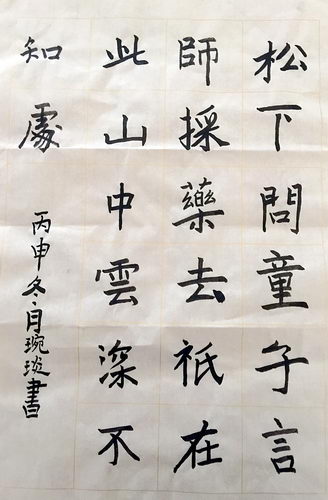 松下問童子言
師採藥去祇在
此山中雲深不
知處
丙申冬月琬琰書